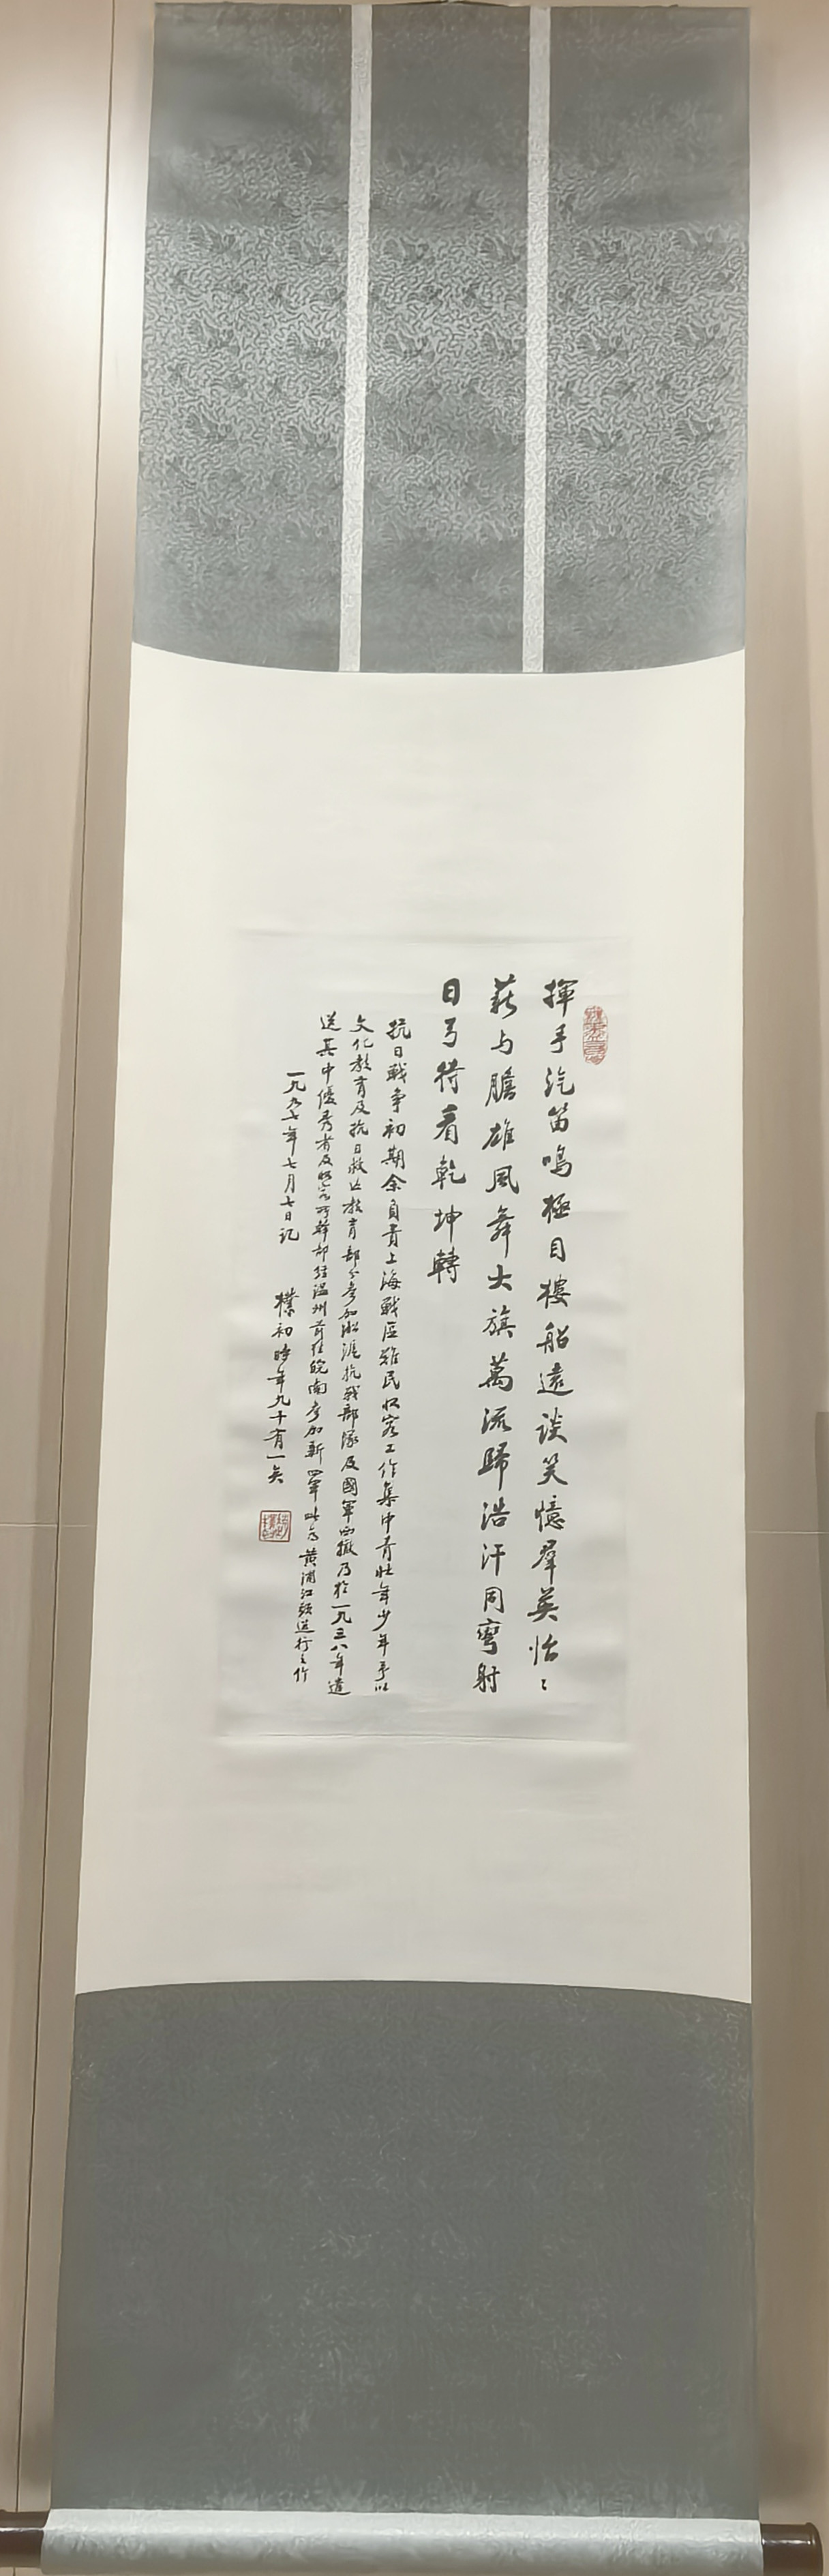 揮手汽笛鳴極目樓船遠談笑憶羣英怡〻
薪与膽雄風舞大旗萬流歸浩汗同彎射
日弓待看乾坤轉
抗日戰争初期余負責上海戰區難民收容工作集中青壯年少年予以
文化教育及抗日救亡教育部分参加淞滬抗戰部隊及國軍西撤乃於一九三八年遣
送其中優秀者及收容所幹部経温州前往皖南参加新四軍此為黄浦江頭送行之作
一九九七年七月七日記
樸初時年九十有一矣